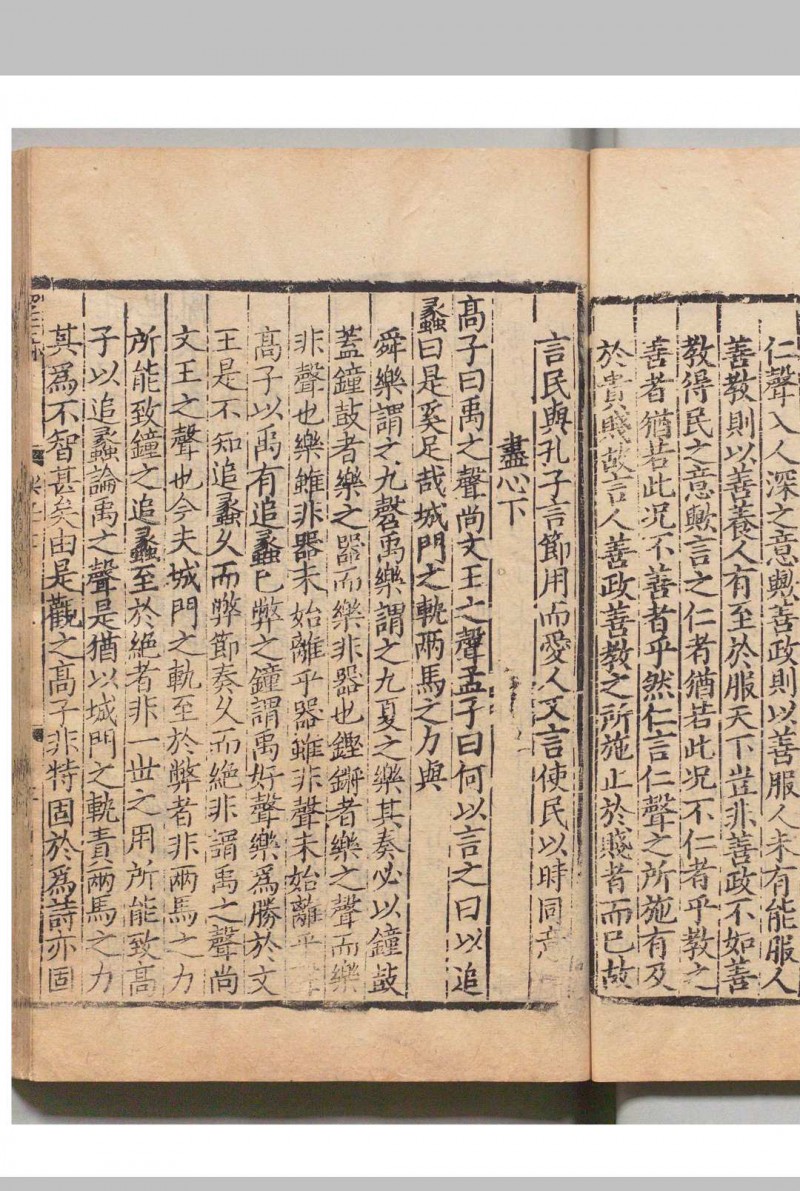 仁聲入人深之意歟善政則以善服人未有能服人
善教則以善養人有至於服天下豈非善政不如善
教得民之意歟言之仁者猶若此况不仁者乎教之
善者猶若此况不善者乎然仁言仁聲之所施有及
於貴賤故言人善政善教之所施止於賤者而已故
言民與孔子言節用而愛人又言使民以時同意
盡心下
高子曰禹之聲尚文王之聲孟子曰何以言之曰以追
蠡曰是奚足哉城門之軌兩馬之力與
舜樂謂之九磬禹樂謂之九夏之樂其奏必以鐘鼓
蓋鐘鼓者樂之器而樂非器也鏗鏘者樂之聲而樂
非聲也樂雖非器未始離乎器雖非聲未始離乎聲
高子以禹有追蠡已弊之鐘謂禹好聲樂爲勝於文
王是不知追蠡久而弊節奏久而絶非謂禹之聲尚
文王之聲也今夫城門之軌至於弊者非兩馬之力
所能致鐘之追蠡至於絶者非一世之用所能致高
子以追蠡論禹之聲是猶以城門之軌責兩馬之力
其爲不智甚矣由是觀之高子非特固於爲詩亦固